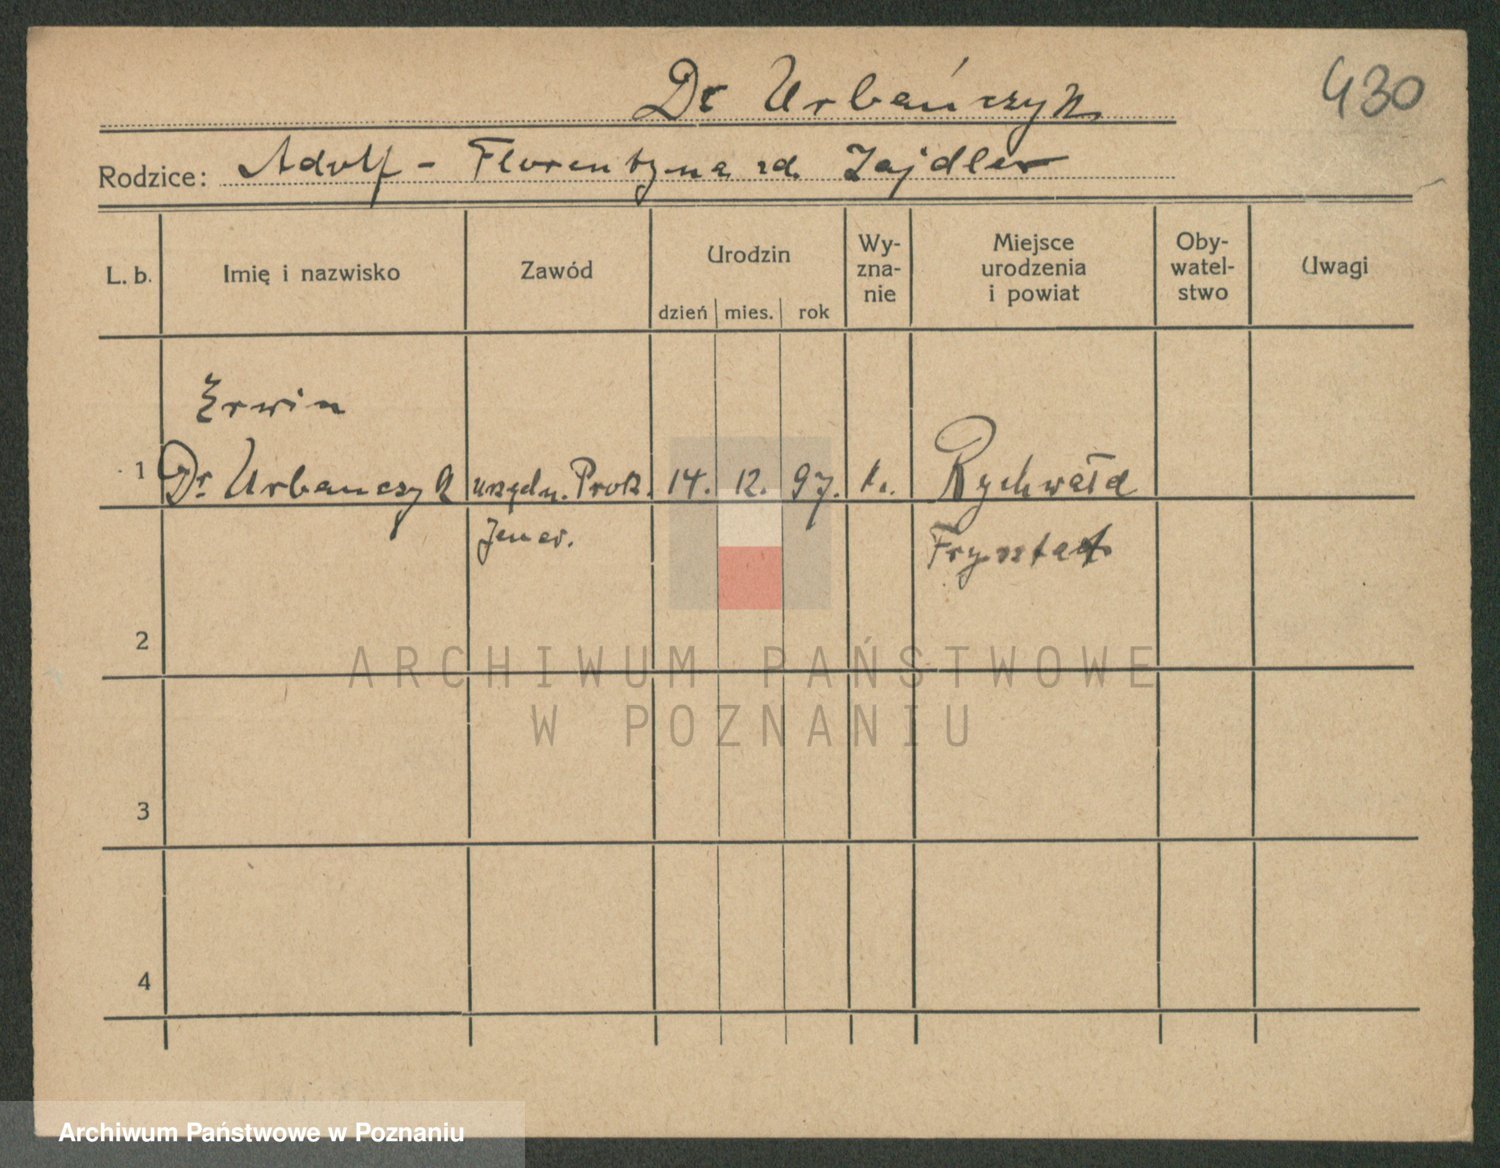 Dr Urbańczyk
430
Rodzice: Adolf - Florentyna zd. Zajdler
L. b.
Imię i nazwisko
Zawód
Urodzin
dzień
mies.
rok
Wy-
zna-
nie
Miejsce
urodzenia
i powiat
Oby-
watel-
stwo
Uwagi
Erwin
1 Dr Urbańczyk urzędn. Prok. 14. 12. 97. k. Rychwałd
Frysztat
2
ARCHIWUM PAŃSTWOWE
W POZNANIU
3
4
Archiwum Państwowe w Poznaniu